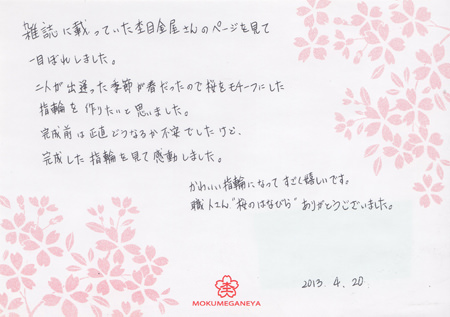 雑誌に載っていた杢目金屋さんのページを見て
一目ぼれしました。
二人が出逢った季節が春だったので桜をモチーフにした
指輪を作りたいと思いました。
完成前は正直どうなるか不安でしたけど、
完成した指輪を見て感動しました。
かわいい指輪になってすごく嬉しいです。
職人さん"桜のはなびら"ありがとうございました。
2013. 4. 20
MOKUMEGANEYA